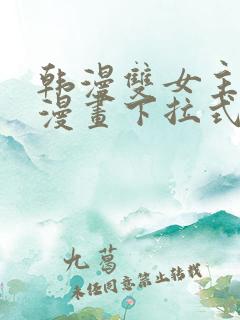 韩漫雙女主
漫畫下拉式
九葛
未经同意禁止转载